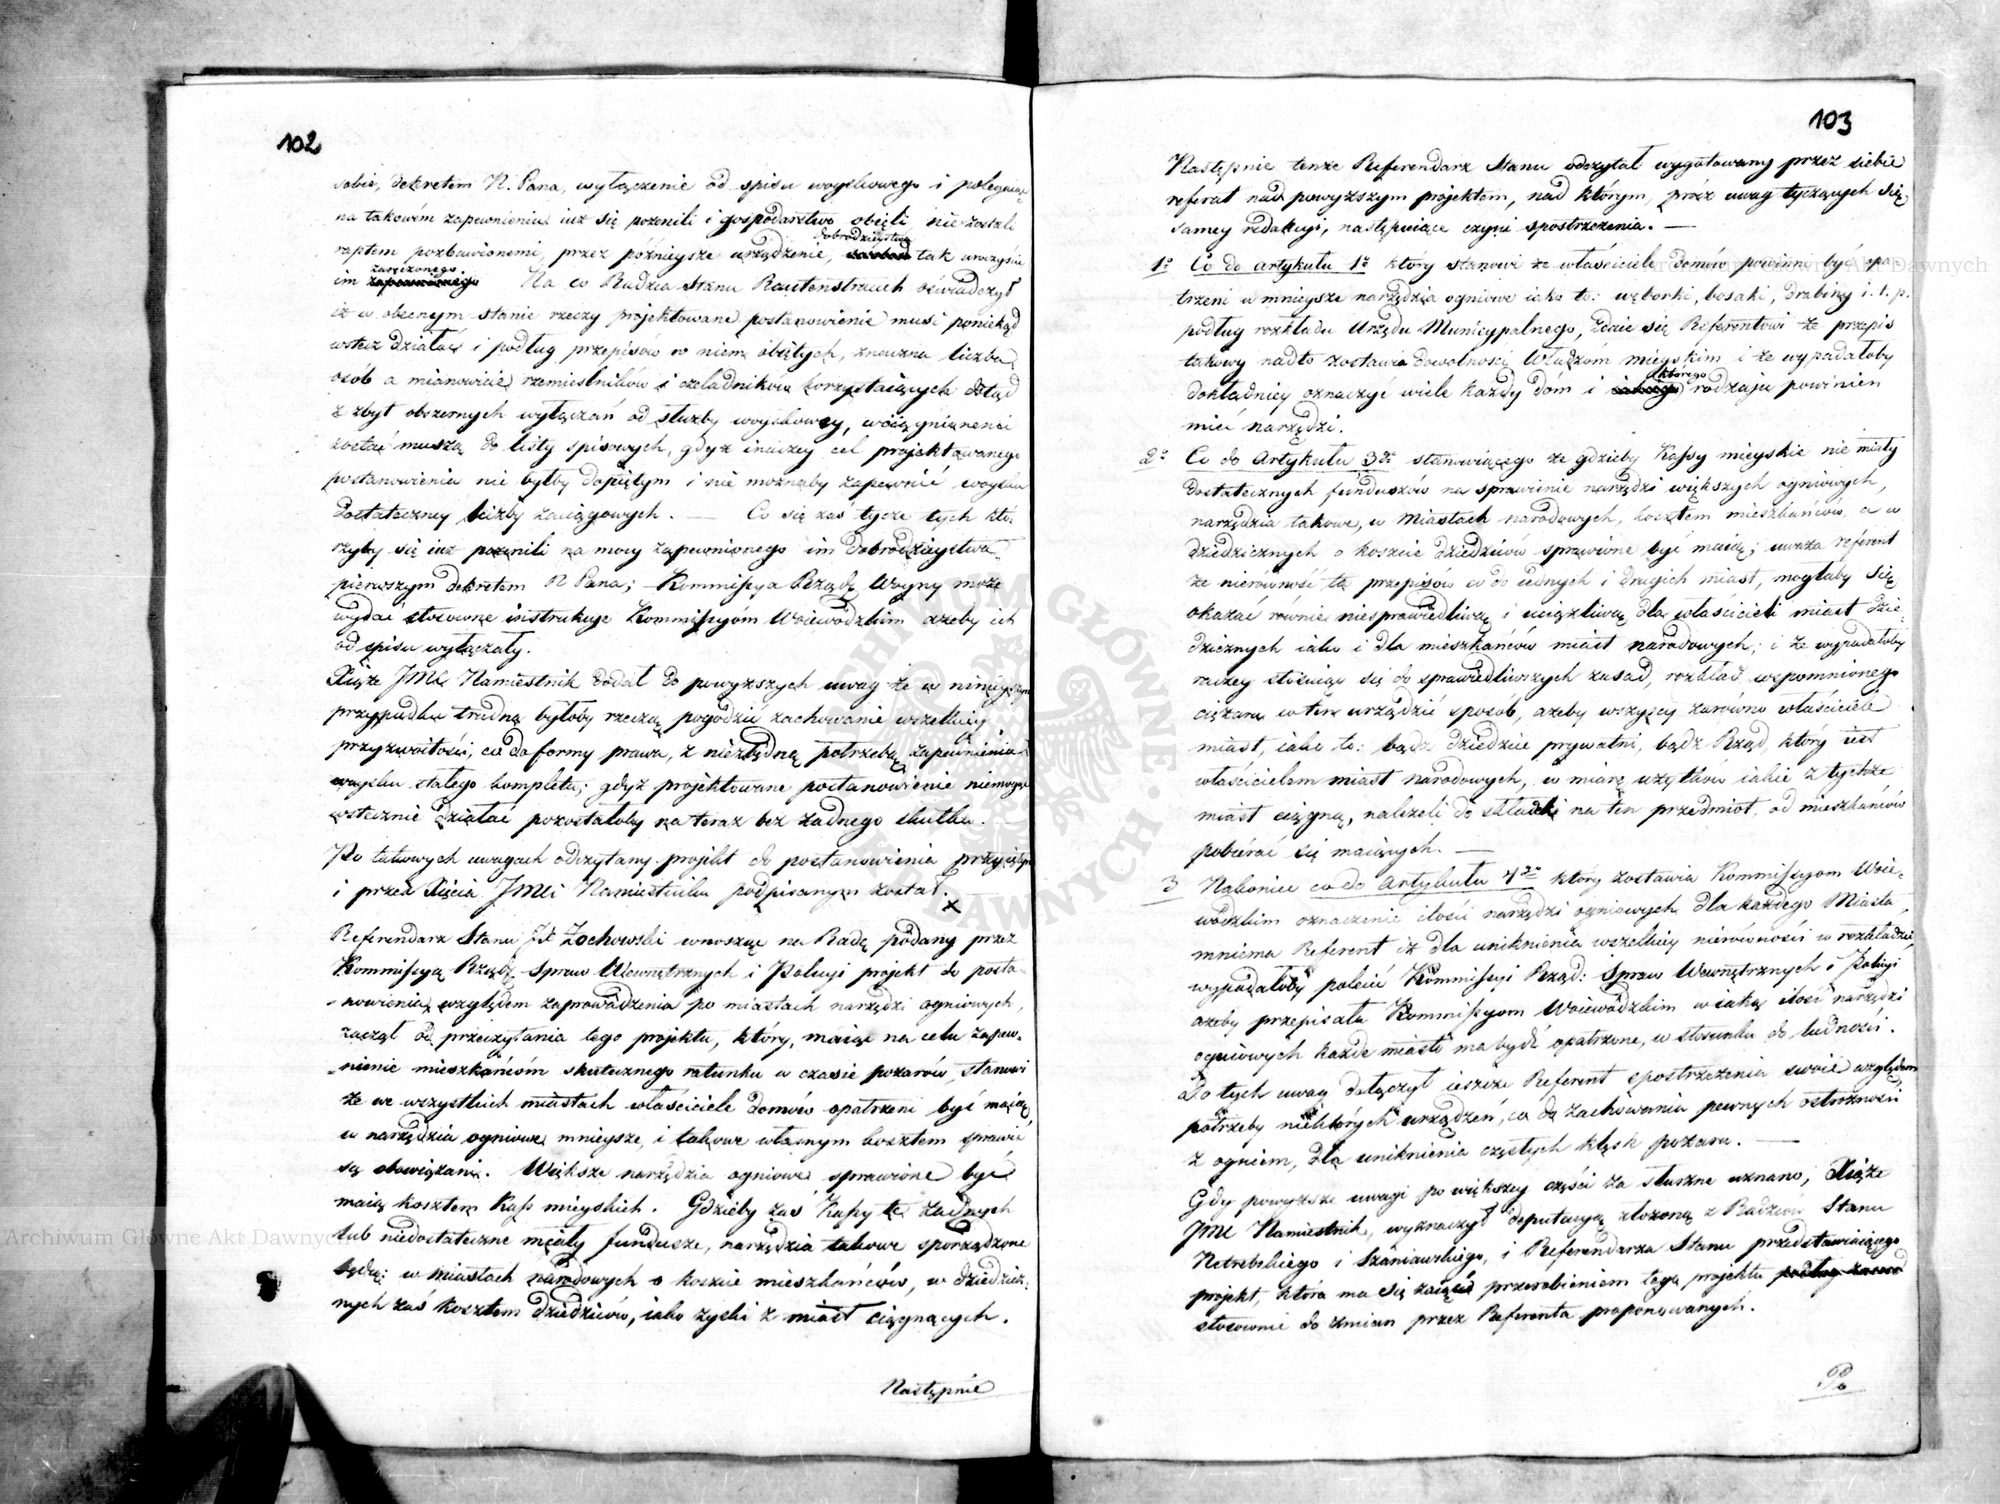 102
sobie, dekretem N. Pana, wyłączenie od spisu woyskowego i polegaiąc
na takowém zapewnieniu iuż się pożenili i gospodarstwo obięli nie zostali
raptem pozbawionemi, przez późnieysze urządzenie, dobrodzieystwa tak uroczyście
im zaręczonego. Na co Radzca Stanu Rautenstrauch oświadczył
iż w obecnym stanie rzeczy projektowane postanowienie musi poniekąd
wstecz działać i podług przepisów w niem obiętych, znaczna liczba
osób a mianowicie rzemieślników i czeladników korzystaiących dotąd
z zbyt obszernych wyłączań od służby woyskowey, wciągnionemi
zostać muszą do listy spisowych, gdyż inaczey cel projektowanego
postanowienia nie byłby dopiętym i nie możnaby zapewnić woysku
dostateczney liczby zaciągowych. — Co się zaś tycze tych któ-
rzyby się iuż pożenili na mocy zapewnionego im dobrodzieystwa
pierwszym dekretem N Pana; Kommissya Rządz. Woyny może
wydać stosowne instrukcye Kommissyóm Woiewódzkim ażeby ich
od spisu wyłączały.
Xiąże JMć Namiestnik dodał do powyższych uwag że w ninieyszym
przypadku trudną byłoby rzeczą pogodzić zachowanie wszelkiey
przyzwoitości, co do formy prawa, z niezbędną potrzebą zapewnienia
woysku stałego kompletu; gdyż projektowane postanowienie niemogąc
wstecznie działać pozostałoby na teraz bez żadnego skutku.
Po takowych uwagach odczytany projekt do postanowienia przyięty
i przez Xięcia JMci Namiestnika podpisanym został. x
Referendarz Stanu JP. Zochowski wnosząc na Radę podany przez
Kommissyą Rządz. Spraw Wewnętrznych i Policyi projekt do posta-
-nowienia, względem zaprowadzenia po miastach narzędzi ogniowych,
zaczął od przeczytania tego projektu, który, maiąc na celu zapew-
-nienie mieszkańcóm skutecznego ratunku w czasie pożarów, stanowi
że we wszystkich miastach właściciele domów opatrzeni być maią,
w narzędzia ogniowe mnieysze, i takowe własnym kosztem sprawić
są obowiązani. Większe narzędzia ogniowe sprawione być
maią kosztem Kass mieyskich. Gdzieby zaś Kassy te żadnych
lub niedostateczne miały fundusze, narzędzia takowe sporządzone
będą: w miastach narodowych o koszcie mieszkańców, w dziedzicz-
nych zaś kosztem dziedziców, iako zyski z miast ciągnących.
Następnie
103
Następnie tenże Referendarz Stanu odczytał wygotowany przez siebie
referat nad powyższym projektem, nad którym, prócz uwag tyczących się
samey redakcyi, następuiące czyni spostrzeżenia. —
1o Co do artykułu 1o który stanowi że właściciele domów powinni być opa-
trzeni w mnieysze narzędzia ogniowe iako to: węborki, bosaki, drabiny i. t. p.
podług rozkładu Urzędu Municypalnego, zdaie się Referentowi że przepis
takowy nadto zostawia dowolności Władzom mieyskim i że wypadałoby
dokładniey oznaczyć wiele każdy dom i którego rodzaju powinien
mieć narzędzi.
2o Co do Artykułu 3o stanowiącego że gdzieby Kassy mieyskie nie miały
dostatecznych funduszów na sprawienie narzędzi większych ogniowych,
narzędzia takowe, w Miastach narodowych, kosztem mieszkańców, a w
dziedzicznych o koszcie dziedziców sprawione być maią; uważa referent
że nierówność ta przepisów co do iednych i drugich miast, mogłaby się
okazać równie niesprawiedliwą i uciążliwą dla właścicieli miast dzie-
dzicznych iako i dla mieszkańców miast narodowych; i że wypadałoby
raczey stósuiąc się do sprawiedliwszych zasad, rozkład wspomnionego
ciężaru w ten urządzić sposób, ażeby wszyscy zarówno właściciele
miast, iako to: bądź dziedzice prywatni, bądź Rząd, który iest
właścicielem miast narodowych, w miarę użytków iakie z tychże
miast ciągną, należeli do składki na ten przedmiot, od mieszkańców
pobiérać się maiących. —
3 Nakoniec co do Artykułu 4go który zostawia Kommissyom Woie-
wódzkim oznaczenie ilości narzędzi ogniowych dla każdego Miasta,
mniema Referent iż dla uniknienia wszelkiey nierówności w rozkładzie,
wypadałoby polecić Kommissyi Rząd: Spraw Wewnętrznych i Policyi
ażeby przepisała Kommissyom Woiewódzkim w iaką ilość narzędzi
ogniowych każde miasto ma być opatrzone, w stosunku do ludności.
Do tych uwag dołączył ieszcze Referent spostrzeżenia swoie względem
potrzeby niektórych urządzeń, co do zachowania pewnych ostrożności
z ogniem, dla uniknienia częstych klęsk pożaru. —
Gdy powyższe uwagi po większey części za słuszne uznano, Xiąże
JMć Namiestnik, wyznaczył deputacyą złożoną z Radzców Stanu
Netrebskiego i Szaniawskiego, i Referendarza Stanu przedstawiaiącego
projekt, która ma się zaiąć przerobieniem tego projektu
stosownie do zmian przez Referenta proponowanych.
Po
Archiwum Główne Akt Dawnych